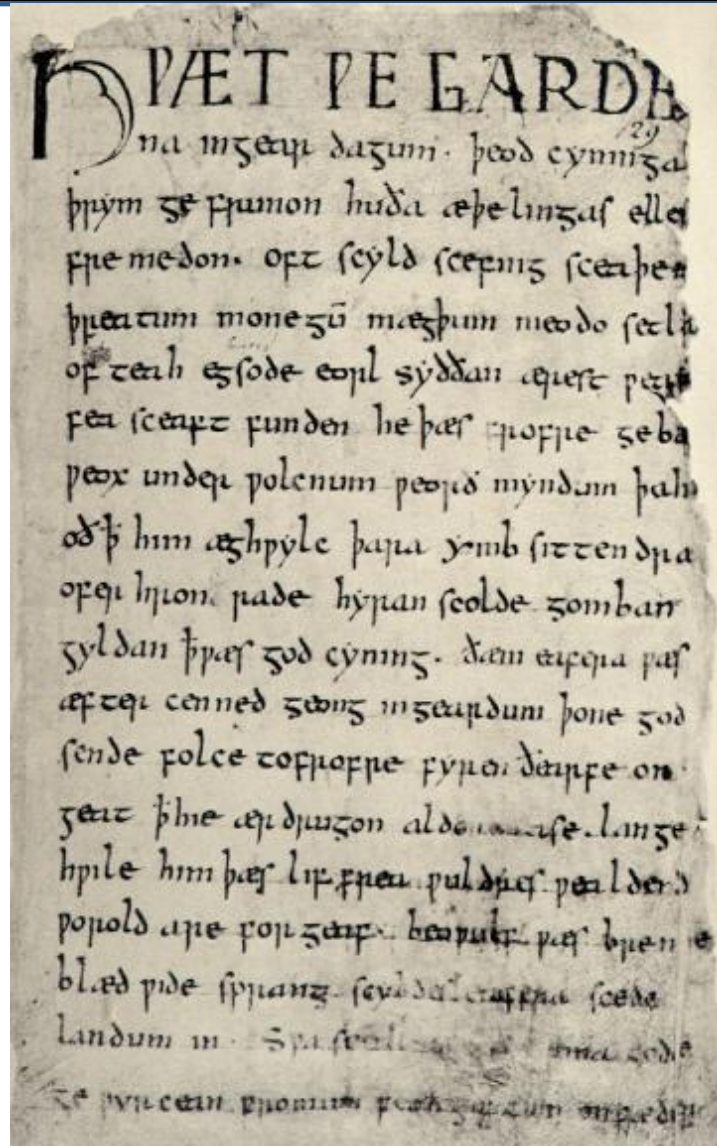 HǷÆT ǷE GARDE
129
na ingear dagum. þeod cyninga
þrym ge frunon huða æþelingas elle
fre medon. oft scyld scefing sceaþe
þreatum monegū mægþum meodo setla
of teah egsode eorl syððan ærest ƿear
fea sceaft funden he þæs frofre geba
ƿeox under ƿolcnum ƿeorð myndum þah
oð ꝥ him æghƿylc þara ymb sittendra
ofer hron rade hyran scolde gomban
gyldan ꝥ ƿæs god cyning. ðæm eafera ƿæs
æfter cenned geong ingeardum þone god
sende folce tofrofre fyren ðearfe on
geat ꝥ hie ær drugon aldor ase. lange
hƿile him þæs lif frea ƿuldres ƿealdend
ƿorold are for geaf. beoƿulf ƿæs breme
blæd ƿide sprang scyldes eafera scede
landum in Sƿa gode
ge ƿyrcean fromum feoh giftum on fæder